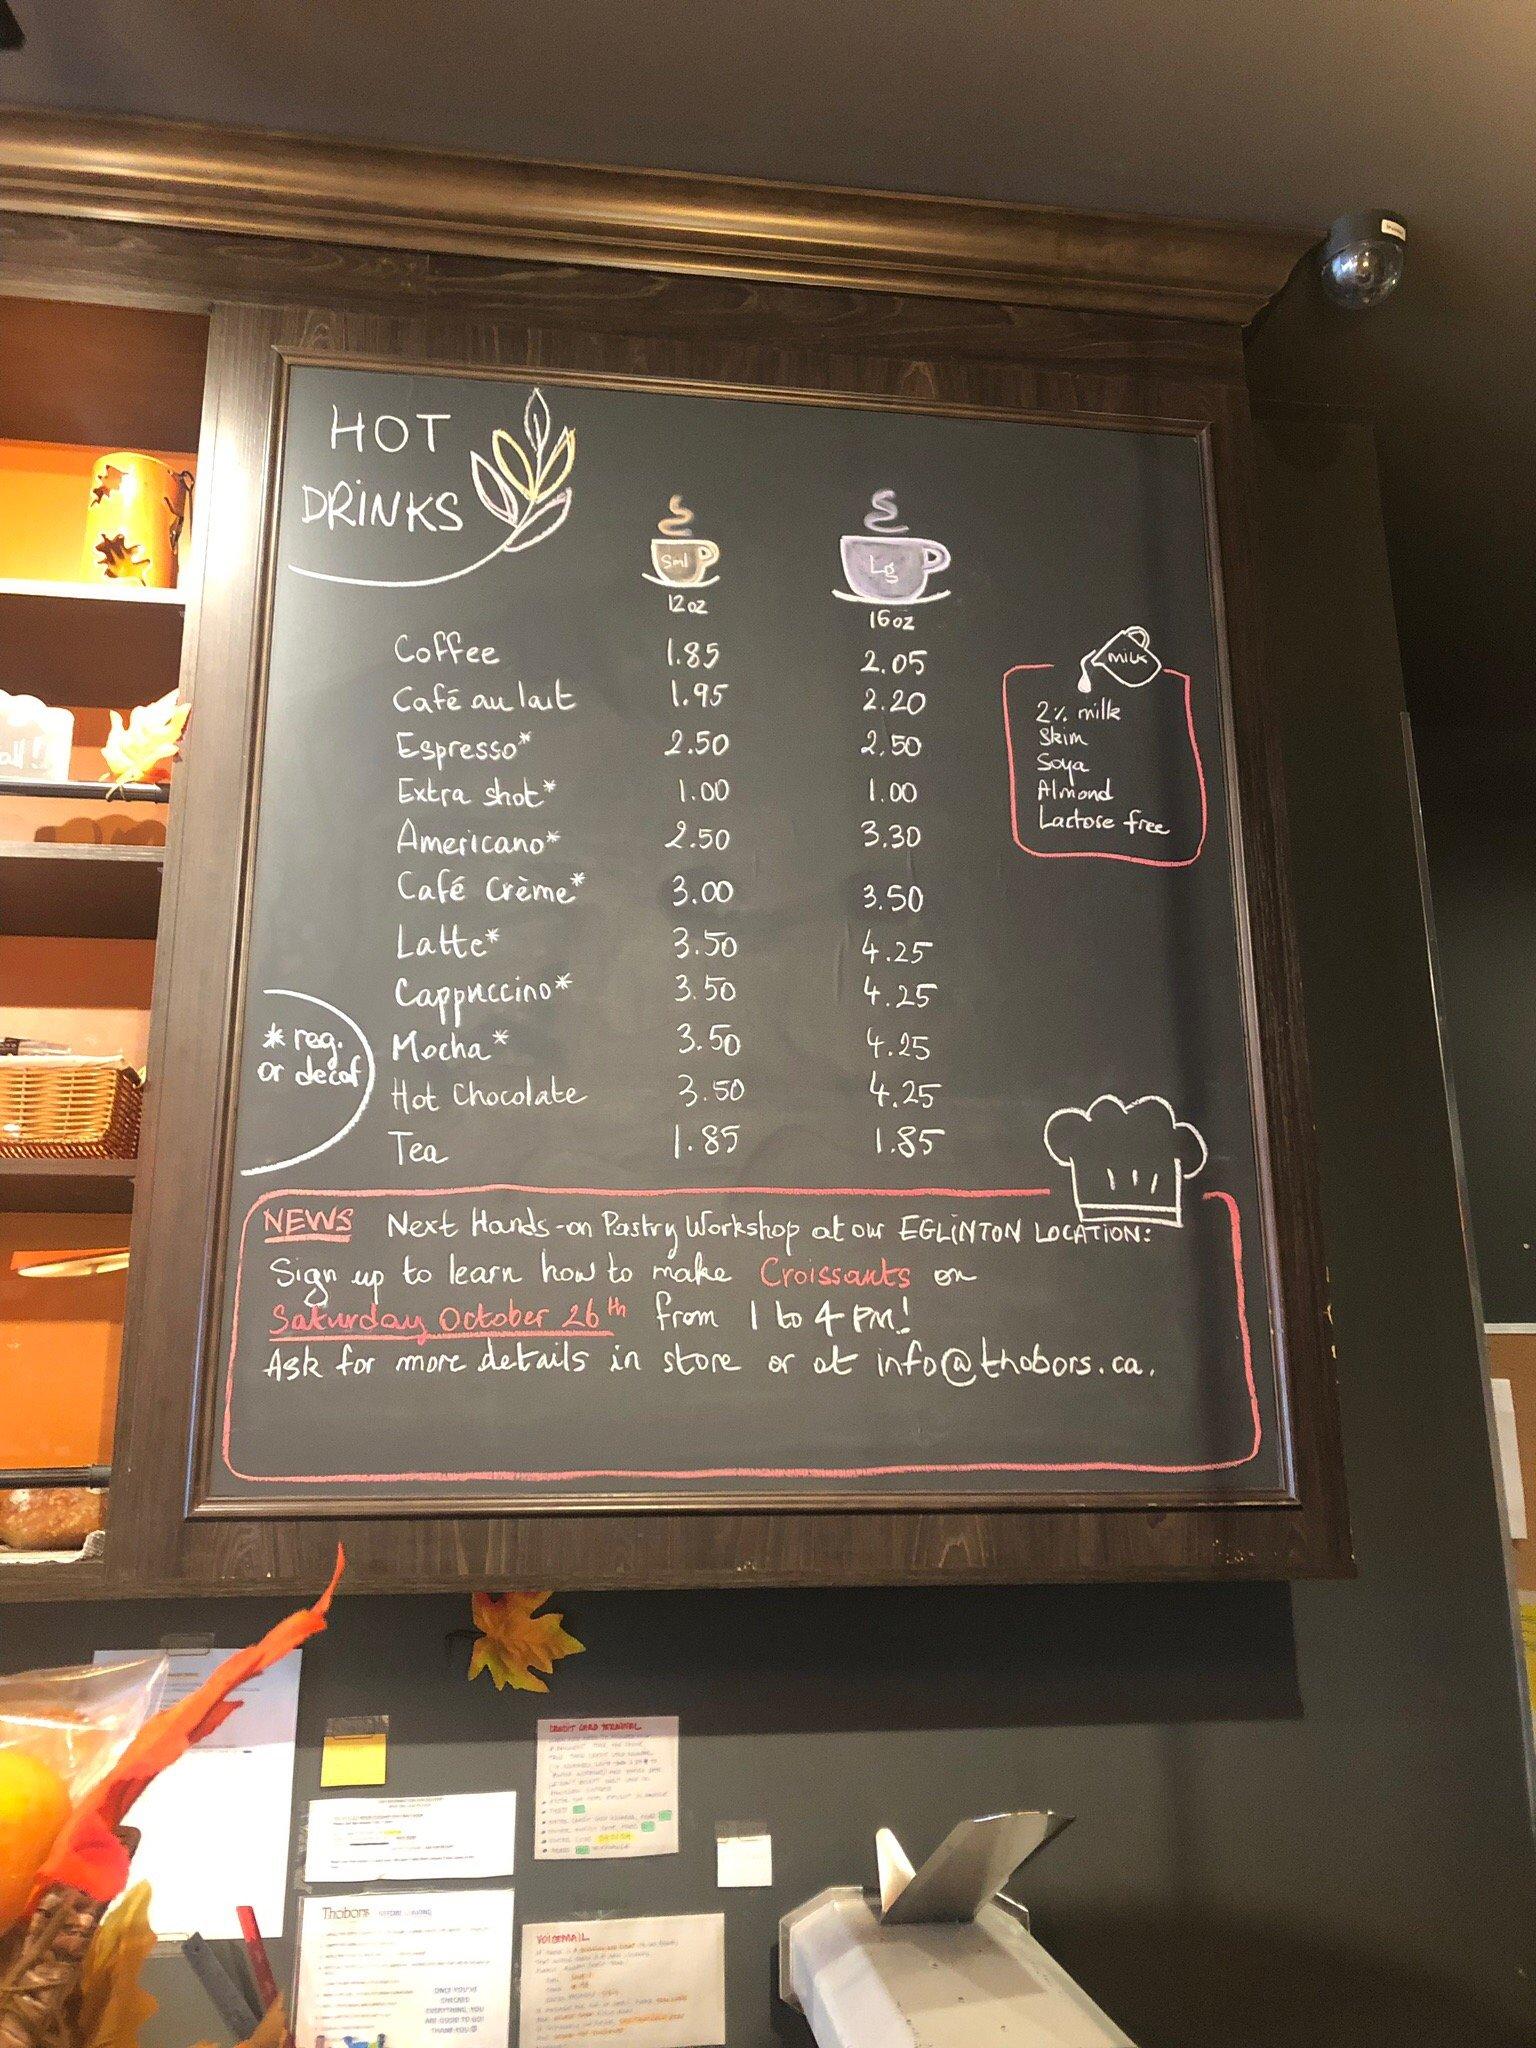 HOT
DRINKS
Sml
12oz
Lg
16oz
Coffee 1.85 2.05
Café au lait 1.95 2.20
Espresso* 2.50 2.50
Extra shot* 1.00 1.00
Americano* 2.50 3.30
Café Crème* 3.00 3.50
Latte* 3.50 4.25
Cappuccino* 3.50 4.25
Mocha* 3.50 4.25
Hot Chocolate 3.50 4.25
Tea 1.85 1.85
* reg.
or decaf
milk
2% milk
Skim
Soya
Almond
Lactose free
NEWS Next Hands-on Pastry Workshop at our EGLINTON LOCATION:
Sign up to learn how to make Croissants on
Saturday October 26th from 1 to 4 PM!
Ask for more details in store or at info@thobors.ca.
CREDIT CARD TERMINAL
Thobors
VOICEMAIL
ONCE YOU'VE
CHECKED
EVERYTHING, YOU
ARE GOOD TO GO!
THANK YOU